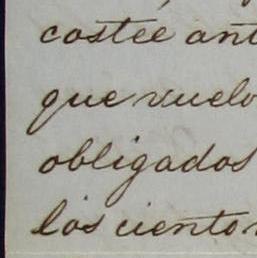 costee ant
que vuelv
obligados
los ciento